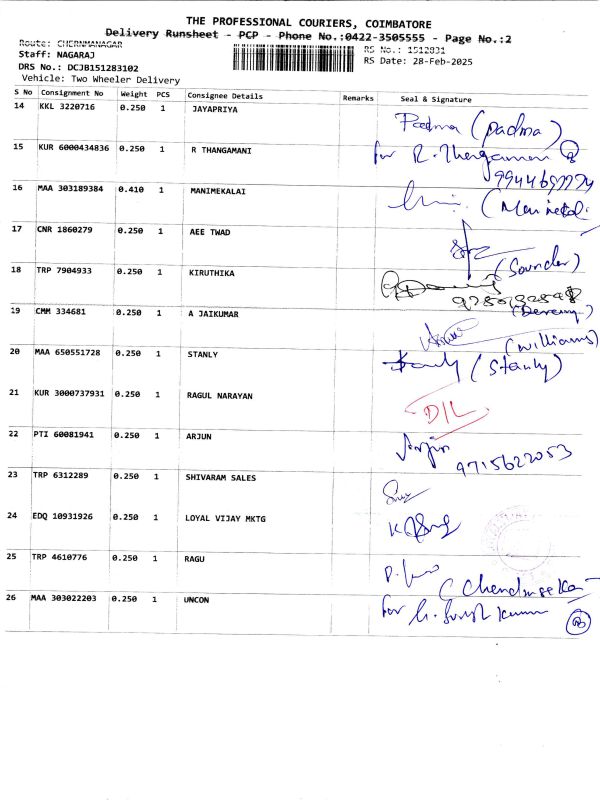 THE PROFESSIONAL COURIERS, COIMBATORE
Delivery Runsheet - PCP - Phone No.:0422-3505555 - Page No.:2
Route: CHERNMANAGAR
Staff: NAGARAJ
DRS No.: DCJB151283102
Vehicle: Two Wheeler Delivery
RS No.: 1512831
RS Date: 28-Feb-2025
S No Consignment No Weight PCS Consignee Details Remarks Seal & Signature
14 KKL 3220716 0.250 1 JAYAPRIYA Padma (padma)
15 KUR 6000434836 0.250 1 R THANGAMANI for R. Thangamani
16 MAA 303189384 0.410 1 MANIMEKALAI
17 CNR 1860279 0.250 1 AEE TWAD (Sounder)
18 TRP 7904933 0.250 1 KIRUTHIKA
19 CMM 334681 0.250 1 A JAIKUMAR (williams)
20 MAA 650551728 0.250 1 STANLY Stanly (Stanly)
21 KUR 3000737931 0.250 1 RAGUL NARAYAN D/L
22 PTI 60081941 0.250 1 ARJUN Arjun
9715622053
23 TRP 6312289 0.250 1 SHIVARAM SALES
24 EDQ 10931926 0.250 1 LOYAL VIJAY MKTG
25 TRP 4610776 0.250 1 RAGU
26 MAA 303022203 0.250 1 UNCON for